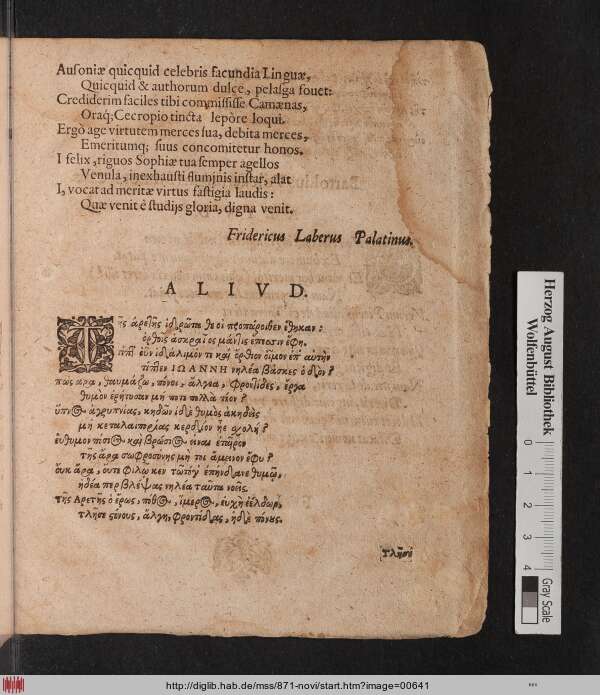 Ausoniæ quicquid celebris facundia Linguæ,
Quicquid & authorum dulce, pelasga fovet:
Crediderim faciles tibi commisisse Camænas,
Oraq; Cecropio tincta lepòre loqui.
Ergò age virtutem merces sua, debita merces,
Emeritumq; suus concomitetur honos.
I felix, riguos Sophiæ tua semper agellos
Venula, inexhausti fluminis instar, alat
I, vocat ad meritæ virtus fastigia laudis:
Quæ venit è studijs gloria, digna venit.
Fridericus Laberus Palatinus.
ALIVD.
Τῆς ἀρετῆς ἱδρῶτα θεοὶ προπάροιθεν ἔθηκαν:
ὀρθῶς ἀσκραῖος μάντις ἔπεσσιν ἔφη.
τίπτ' οὖν καὶ ὄρθιον οἶμον ἐπ' αὐτὴν
ΙΩΑΝΝΗ νηλέα βάσκες ὁδόν;
πῶς ἄρα, θαυμάζω, πόνοι, ἄλγεα, φροντίδες, ἔργα
θυμὸν ἐρήτυσαν μή ποτε πολλὰ τεόν;
ὕπνος ἀγρυπνίας, κηδῶν ἰδὲ θυμὸς ἀκηδὴς
μὴ κεταλαιπορίας κέρδιον ἠὲ σχολή;
εὔθυμον πόσιος καὶ βρώσιος εἶναι ἑταῖρον
τῆς ἄρα σωφροσύνης μή τοι ἄμεινον ἔφυ;
οὐκ ἄρα, οὔτε φίλῳ κεν τῶτόγ' ἐπήνδανε θυμῷ,
ἡδέα περ βλέψας νηλέα ταῦτα νοεῖς.
τῆς Ἀρετῆς ὁ ἔρως, πόθος, ἵμερος, εὐχὴ ἐέλδωρ,
τλῆσε σένους, ἄλγη, φροντίδας, ἠδὲ πόνους.
Τλῆσεν
Herzog August Bibliothek
Wolfenbüttel
0
1
2
3
4
Gray Scale
http://diglib.hab.de/mss/871-novi/start.htm?image=00641